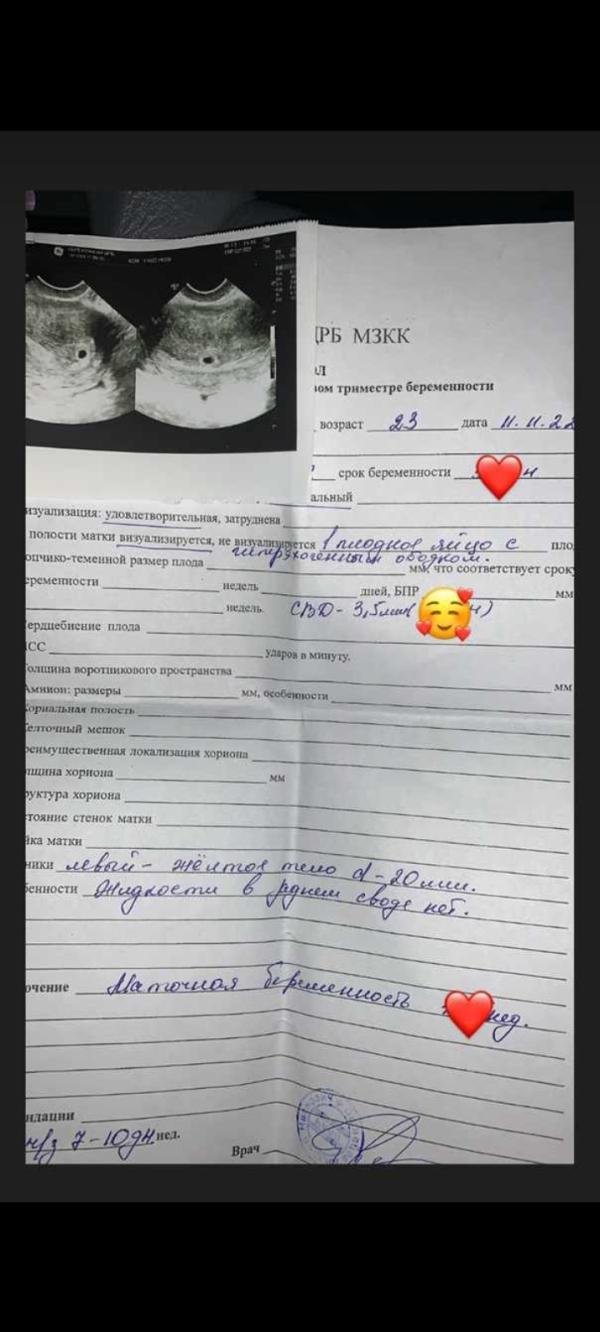 РБ МЗКК
ом триместре беременности
возраст 23 дата 11.11.22
срок беременности н
альный
изуализация: удовлетворительная, затруднена
полости матки визуализируется, не визуализируется 1 плодное яйцо с пло
гиперэхогенным ободком.
опчико-теменной размер плода мм, что соответствует сроку
еременности недель дней, БПР мм
недель. СВД - 3,5мм( н)
ердцебиение плода
СС ударов в минуту.
олщина воротникового пространства мм
Амнион: размеры мм, особенности
ориальная полость
елточный мешок
реимущественная локализация хориона
лщина хориона мм
руктура хориона
тояние стенок матки
йка матки
ники левый - жёлтое тело d - 20 мм.
бенности Жидкости в заднем своде нет.
ючение Маточная беременность нед.
ндации
ч/з 7-10дн нед.
Врач